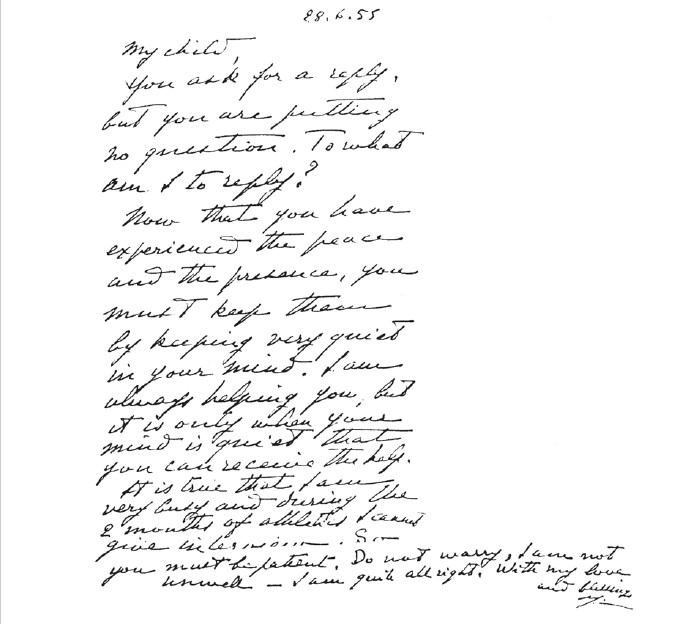 28.6.55
My child,
You ask for a reply,
but you are putting
no question. To what
am I to reply?
Now that you have
experienced the peace
and the presence, you
must keep them
by keeping very quiet
in your mind. I am
always helping you, but
it is only when your
mind is quiet that
you can receive the help.
It is true that I am
very busy and during the
2 months of athletics I cannot
give interviews. So
you must be patient. Do not worry, I am not
unwell – I am quite all right. With my love
and blessings